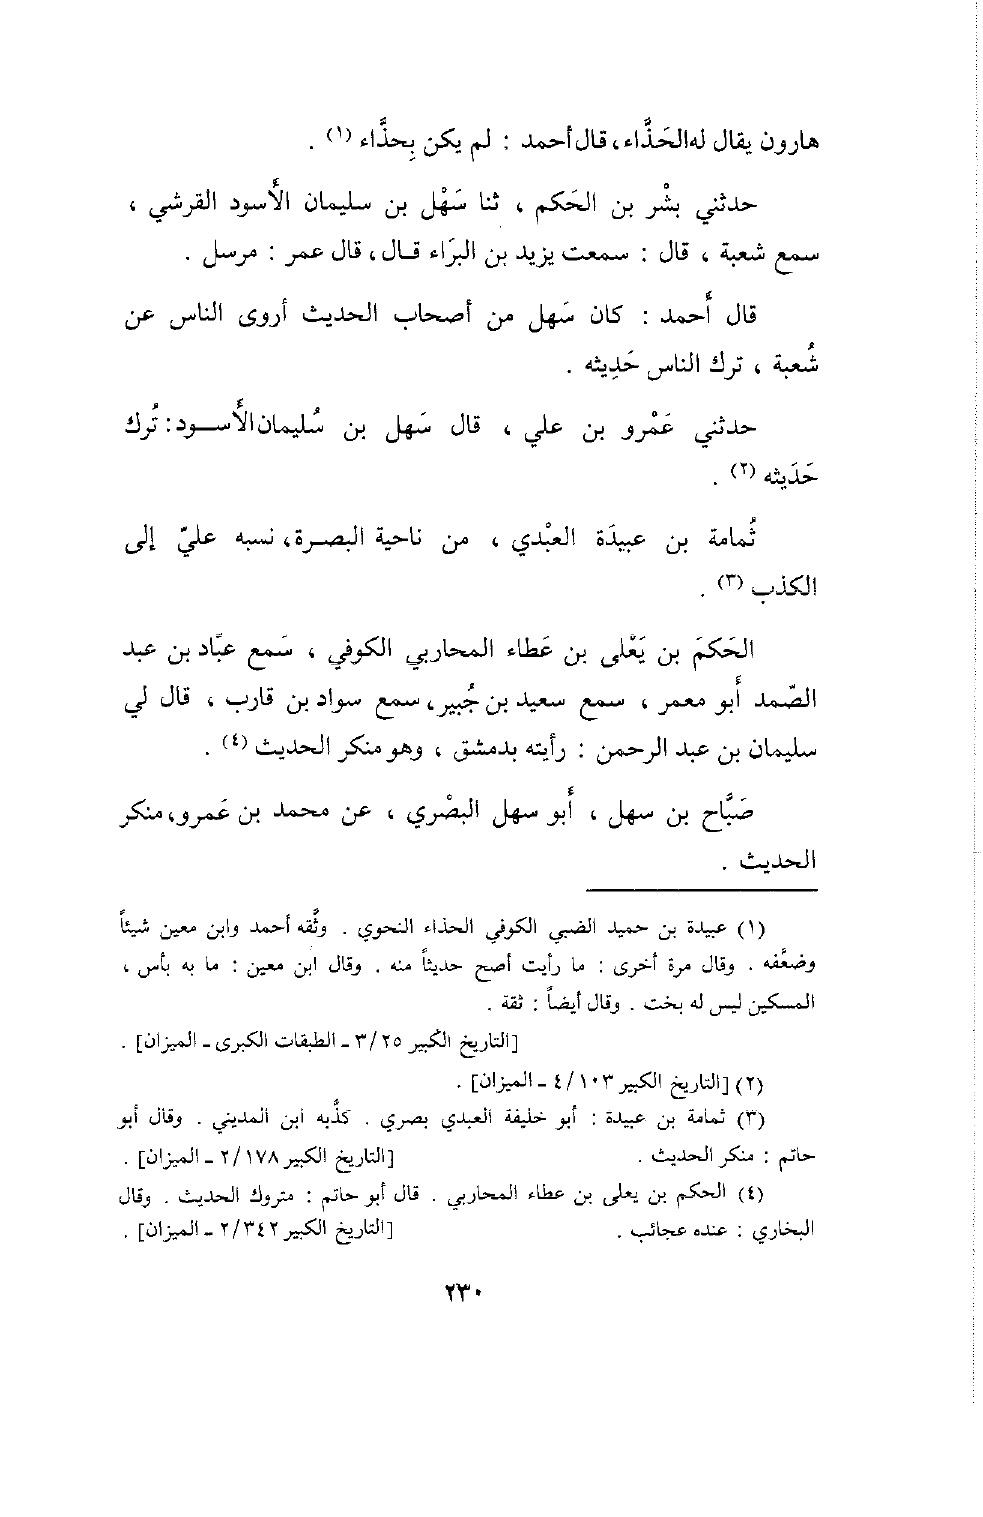 هارون يقال له الحَذَّاء، قال أحمد : لم يكن بِحذَّاء (١) .
حدثني بشْر بن الحَكم ، ثنا سَهْل بن سليمان الأَسود القرشي ،
سمع شعبة ، قال : سمعت يزيد بن البرَاء قـال، قال عمر : مرسل .
قال أَحمد : كان سَهل من أصحاب الحديث أروى الناس عن
شُعبة ، ترك الناس حَدِيثه .
حدثني عَمْرو بن علي ، قال سَهل بن سُليمان الأَســود: تُرك
حَدَيثه (٢) .
ثُمامة بن عبيدَة العبْدي ، من ناحية البصـرة، نسبه عليّ إلى
الكذب (٣) .
الحَكمَ بن يَعْلى بن عَطاء المحاربي الكوفي ، سَمع عبَّاد بن عبد
الصّمد أَبو معمر ، سمع سعيد بن جُبير، سمع سواد بن قارب ، قال لي
سليمان بن عبد الرحمن : رأيته بدمشق ، وهو منكر الحديث (٤) .
صَبَّاح بن سهل ، أَبو سهل البصْري ، عن محمد بن عَمرو، منكر
الحديث .
(١) عبيدة بن حميد الضبي الكوفي الحذاء النحوي . وثَّقه أحمد وابن معين شيئاً
وضعَّفه . وقال مرة أخرى : ما رأيت أصح حديثاً منه . وقال ابن معين : ما به بأس ،
المسكين ليس له بخت . وقال أيضاً : ثقة .
[التاريخ الكبير ٣/٢٥ ـ الطبقات الكبرى ـ الميزان] .
(٢) [التاريخ الكبير ٤/١٠٣ ـ الميزان] .
(٣) ثمامة بن عبيدة : أبو خليفة العبدي بصري . كذَّبه ابن المديني . وقال أبو
حاتم : منكر الحديث . [التاريخ الكبير ٢/١٧٨ ـ الميزان] .
(٤) الحكم بن يعلى بن عطاء المحاربي . قال أبو حاتم : متروك الحديث . وقال
البخاري : عنده عجائب . [التاريخ الكبير ٢/٣٤٢ ـ الميزان] .
٢٣٠